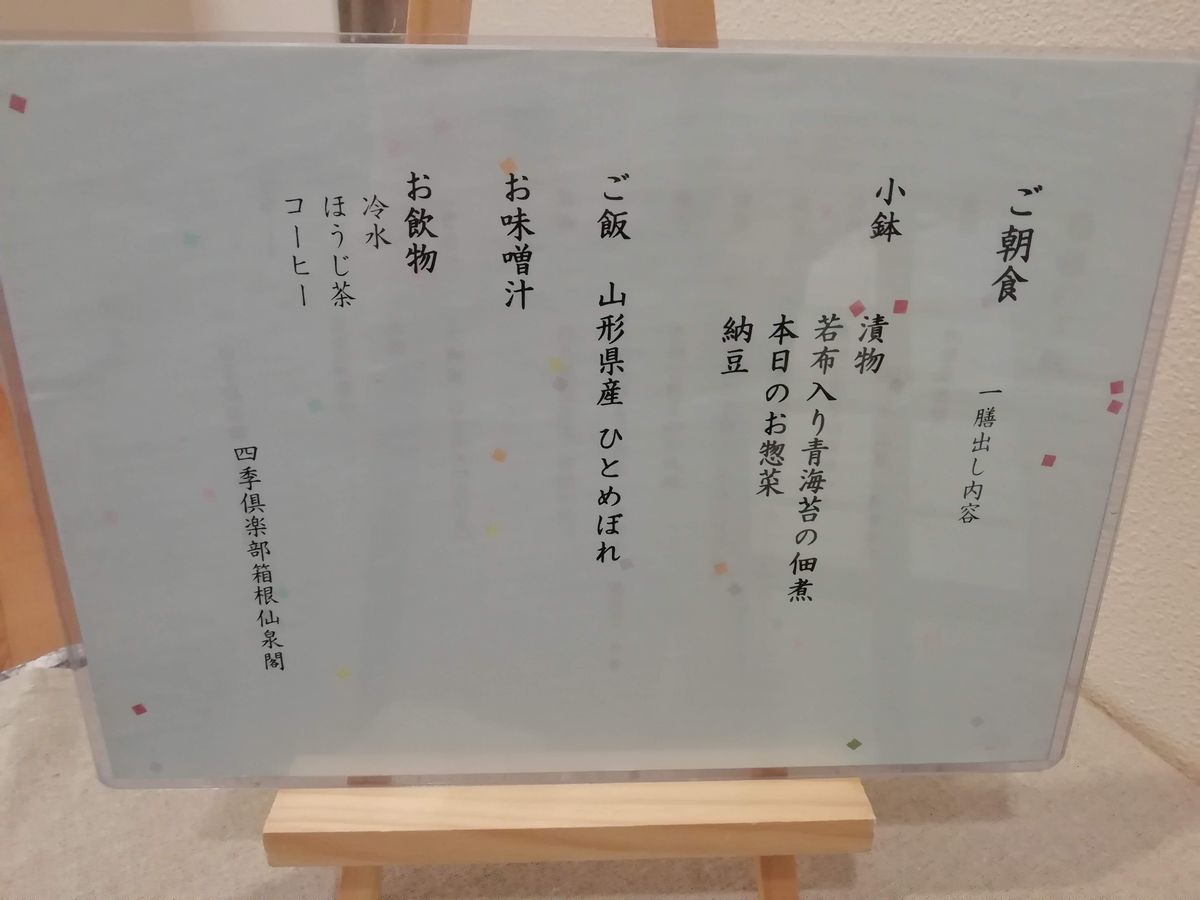 ご朝食
一膳出し内容
小鉢
漬物
若布入り青海苔の佃煮
本日のお惣菜
納豆
ご飯 山形県産 ひとめぼれ
お味噌汁
お飲物
冷水
ほうじ茶
コーヒー
四季倶楽部箱根仙泉閣